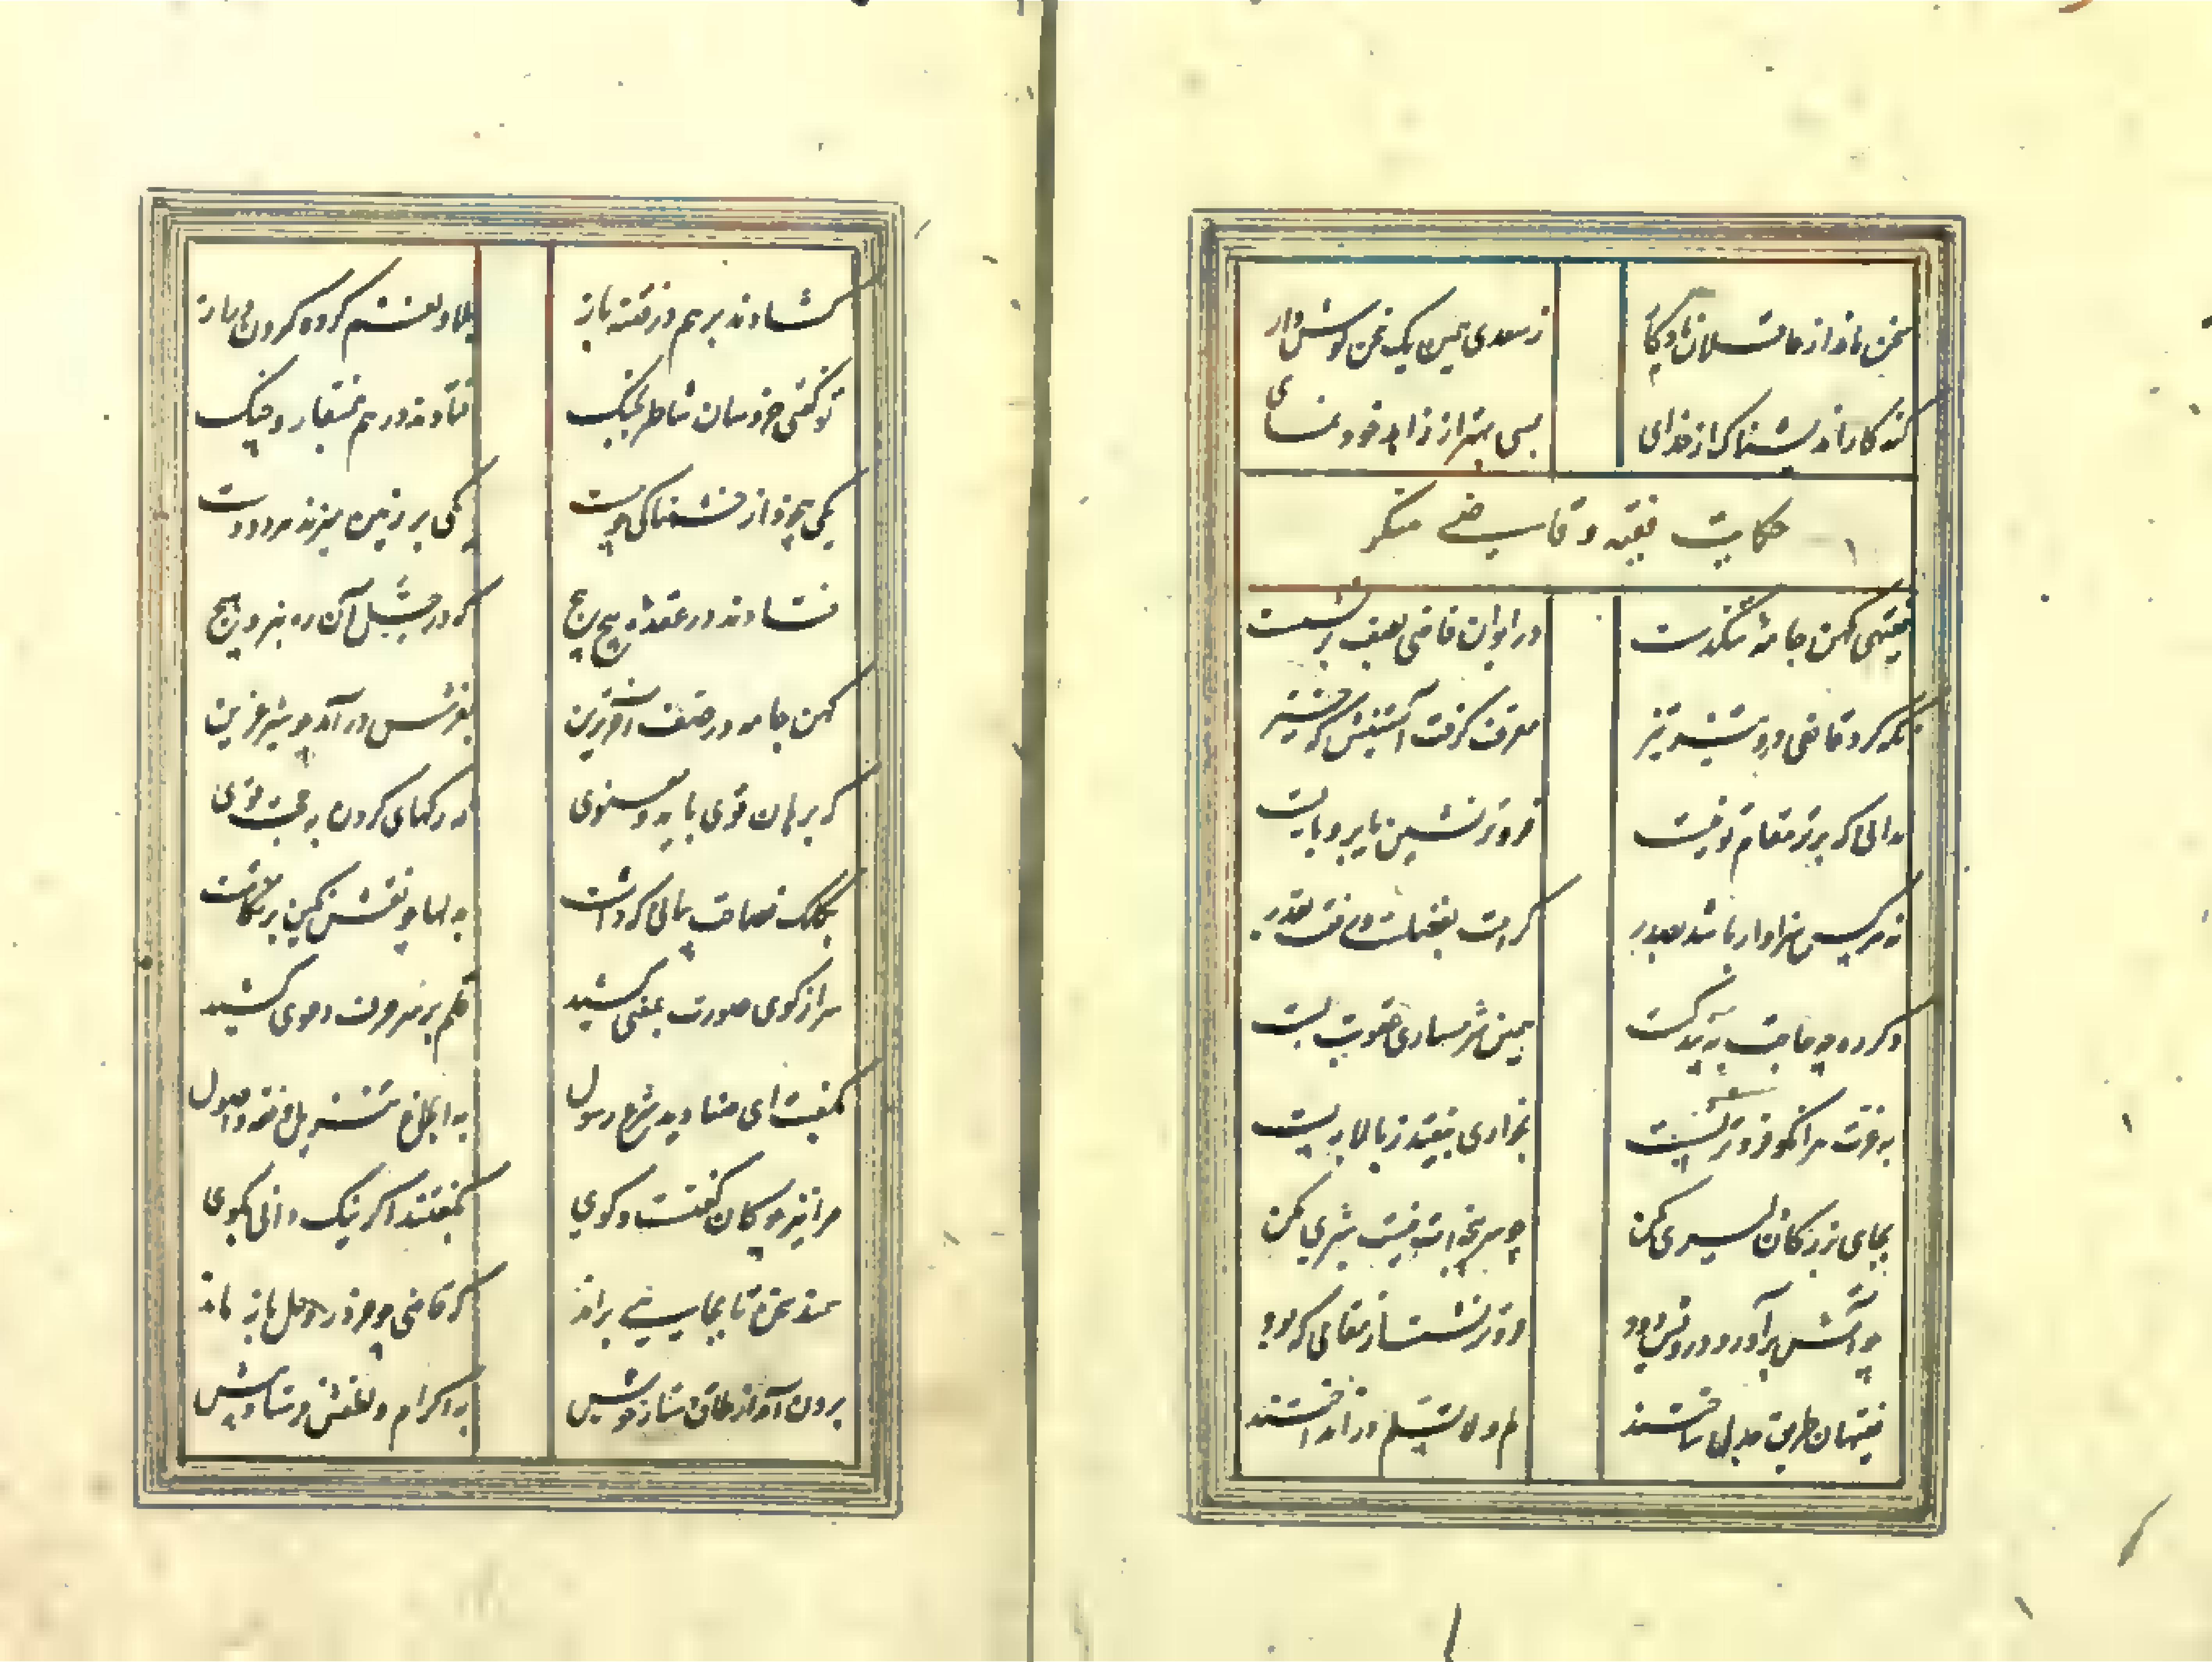 سخن ماند از عاقلان یادگار ز سعدی همین یک سخن گوش دار
گنه کار اندیشناک از خدای بسی بهتر از زاهد خودنمای
حکایت فقیه و قاضی متکبر
فقیهی کهن جامه تنگدست در ایوان قاضی بصف برنشست
نگه کرد قاضی درو تیز تیز معرف گرفت آستینش که خیز
ندانی که برتر مقام تو نیست فروتر نشین یا برو یا بایست
نه هر کس سزاوار باشد بصدر کرامت بفضلست و رفعت بقدر
دگر ره چه حاجت به پند کست همین شرمساری عقوبت بست
به عزت هر آنکو فروتر نشست بخواری نیفتد ز بالا به پست
بجای بزرگان دلیری مکن چو سر پنجه ات نیست شیری مکن
چو آتش برآورد درویش دود فروتر نشست از مقامی که بود
فقیهان طریق جدل ساختند لم و لا نسلم درانداختند
گشادند بر هم در فتنه باز بلا و نعم کرده گردن دراز
تو گفتی خروسان شاطر بجنگ فتادند در هم بمنقار و چنگ
یکی بیخود از خشمناکی چو مست یکی بر زمین میزند هر دو دست
فتادند در عقده پیچ پیچ که در حل آن ره نبردند هیچ
کهن جامه در صف آخرترین بغرش درآمد چو شیر عرین
که برهان قوی باید و معنوی نه رگهای گردن به حجت قوی
بکلک فصاحت بیانی که داشت به دلها چو نقش نگین بر نگاشت
سر از کوی صورت بمعنی کشید قلم بر سر حرف دعوی کشید
بگفت ای صنادید شرع رسول به ابلاغ تنزیل و فقه و اصول
مرا نیز چوگان لعبست و گوی بگفتند اگر نیک دانی بگوی
سمند سخن تا بجایی براند که قاضی چو خر در وحل باز ماند
برون آمد از طاق و دستار خویش به اکرام و لطفش فرستاد پیش